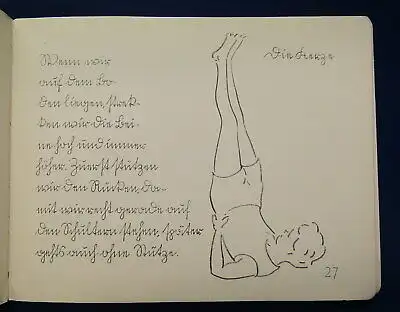 Die Kerze
Wenn wir
auf dem Bo-
den liegen, strek-
ken wir die Bei-
ne hoch und immer
höher. Zuerst stützen
wir den Rücken, da-
mit wir recht gerade auf
den Schultern stehen; später
gehts auch ohne Stütze.
27